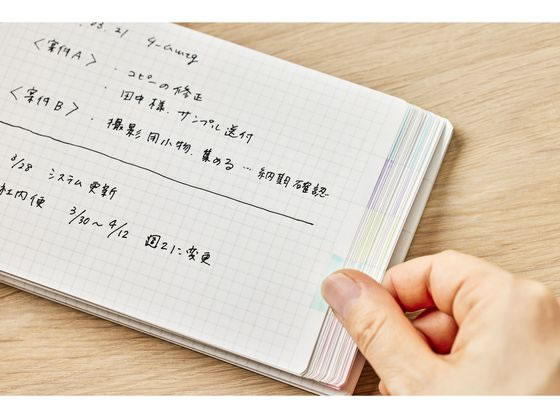 03.21 チームmtg
〈案件A〉・コピーの修正
・田中様、サンプル送付
〈案件B〉・撮影用小物、集める…納期確認
3/28 システム更新
社内便 3/30〜4/12 週2に変更